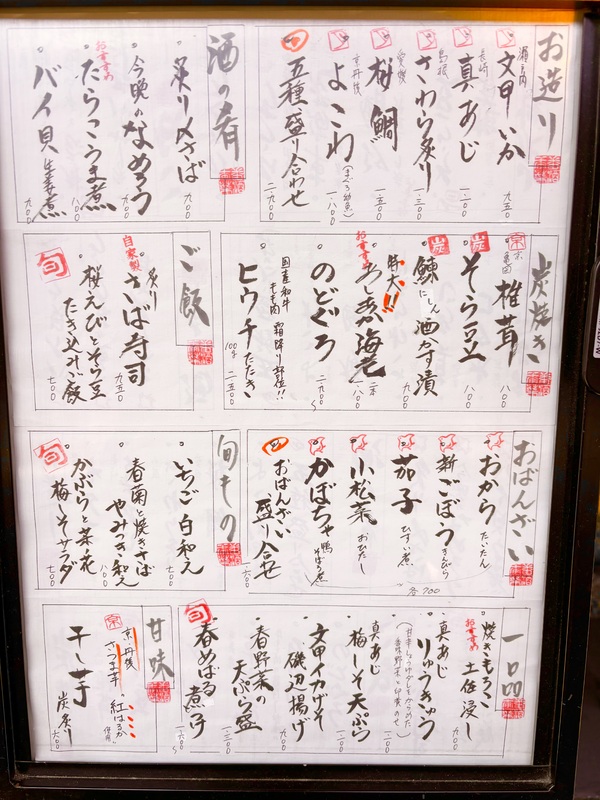 お造り
瀬戸内
文甲いか
九五〇
長崎
真あじ
一二〇〇
島根
さわら炙り
一三〇〇
愛媛
桜鯛
一五〇〇
京丹後
よこわ
(まぐろ幼魚)
一八〇〇
五種盛り合わせ
二九〇〇
酒の肴
炙り〆さば
九〇〇
今晩のなめろう
九〇〇
おすすめ
たらこうま煮
八〇〇
バイ貝生姜煮
九〇〇
炭焼き
京
椎茸
八〇〇
炭
そら豆
八〇〇
炭
鰊にしん酒かす漬
九〇〇
特大!!
おすすめ
海老
二本
一八〇〇
のどぐろ
二九〇〇〜
国産和牛
もも肉
霜降り部位!!
ヒウチたたき
100g
二五〇〇
ご飯
自家製
炙り
さば寿司
九五〇
旬
桜えびとそら豆
たき込みご飯
七〇〇
おばんざい
おから
たいたん
新ごぼう
きんぴら
茄子
ひすい煮
小松菜
おひたし
かぼちゃ
鴨そぼろ煮
各700
おばんざい
盛り合せ
一六〇〇
旬もの
いちご白和え
七〇〇
春菊と焼きさば
やみつき和え
八〇〇
旬
かぶらと菜の花
梅しそサラダ
七〇〇
一品
焼きもろこ
土佐浸し
おすすめ
真あじ
りゅうきゅう
一二〇〇
真あじ
梅しそ天ぷら
一二〇〇
文甲イカげそ
磯辺揚げ
九〇〇
春野菜の
天ぷら盛
一三〇〇
旬
春めばる
煮付
一六〇〇〜
甘味
京
京丹後
さつま芋
"紅はるか"
使用
干し芋
炭炙り
六〇〇